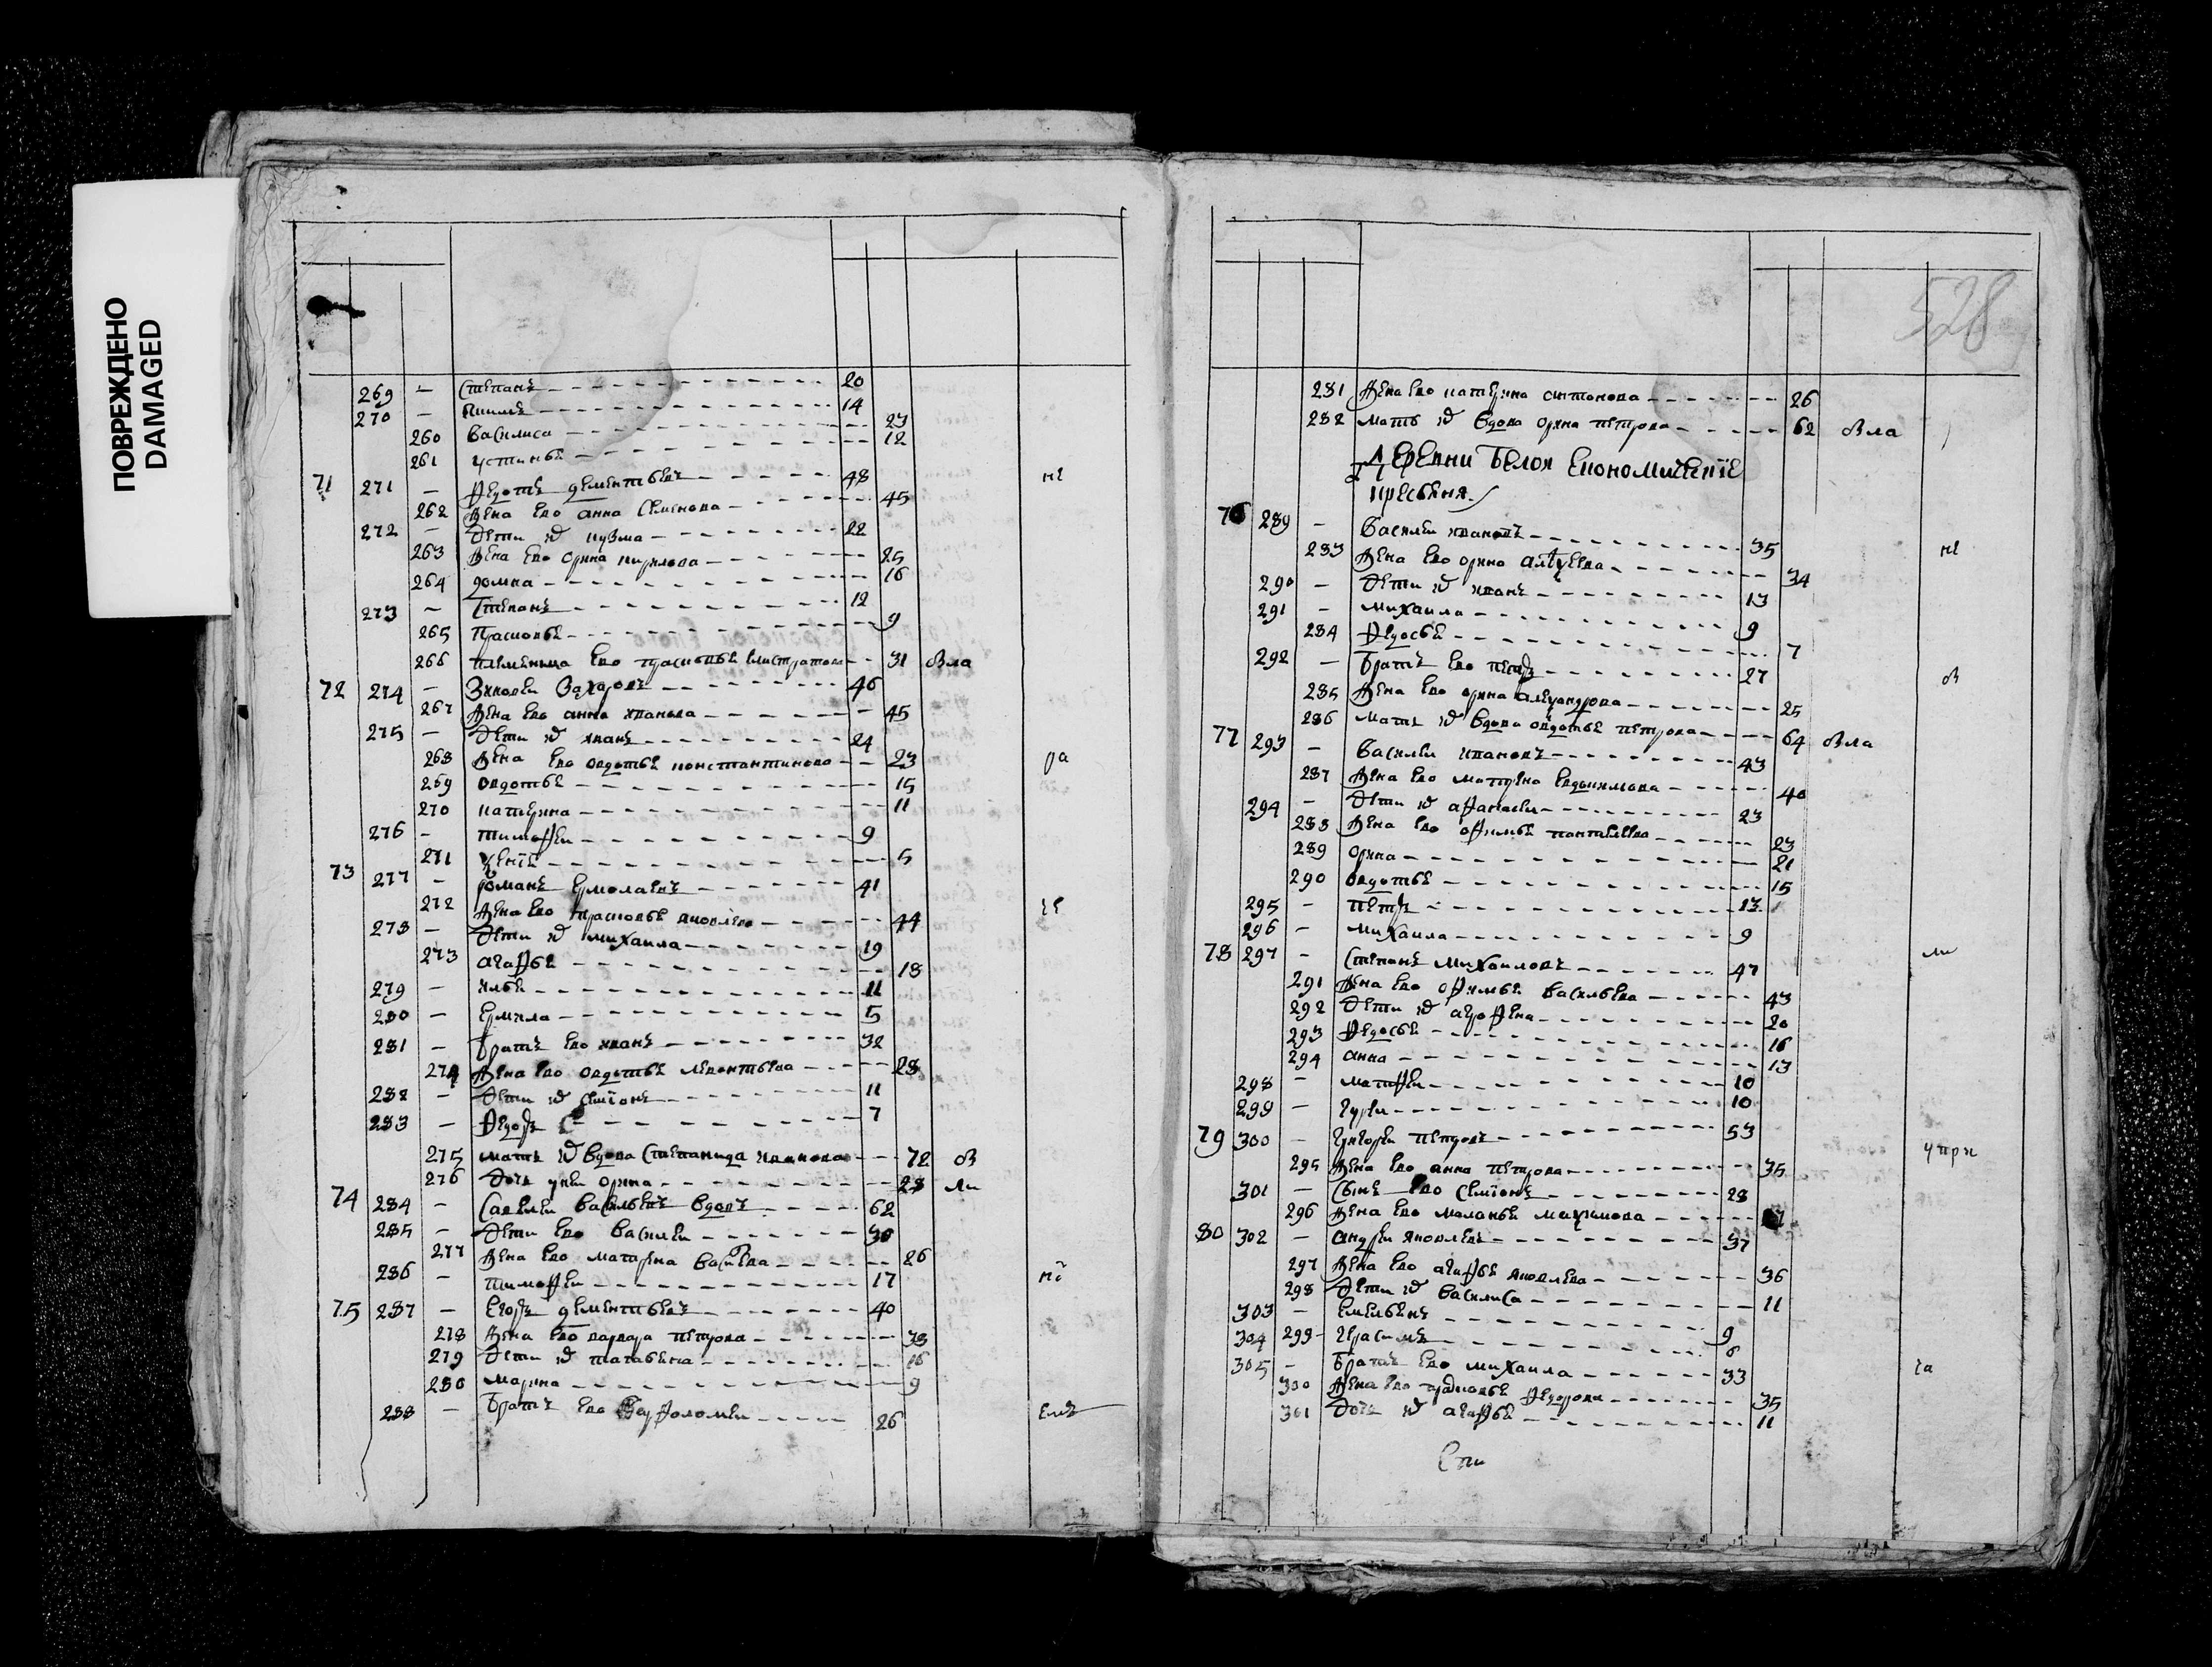 ПОВРЕЖДЕНО
DAMAGED
269 - Степанъ 20
270 - 14
260 Василиса 23
261 устинья 12
71 271 - Федотъ дементьевъ 48 не
262 Жена ево анна Семенова 45
272 - Дети их кузма 22
263 Жена ево орина кирилова 25
264 домна 16
273 - Степанъ 12
265 Прасковья 9
266 племяница ево прасковья 31
72 274 - Зиновеи Захаровъ 46
267 Жена ево анна иванова 45
275 - Дети их иванъ 24
268 Жена ево овдотья константинова 23 ра
269 овдотья 15
270 катерина 11
276 - тимофеи 9
271 5
73 277 - романъ Ермолаевъ 41
272 Жена ево Прасковья яковлева 44
278 - Дети их михаила 19
273 агафья 18
279 - илья 11
280 - Ермила 5
281 - Братъ ево иванъ 32
274 Жена ево овдотья леонтьева 28
282 - Дети их семионъ 11
283 - Федоръ 7
275 мать их вдова Степанида иванова 72 ов
276 Дочь у неи орина 28 ли
74 284 - Савелеи Васильевъ вдовъ 62
285 - Дети ево Василеи 30
277 Жена ево матрена 26
286 - тимофеи 17
75 287 - Егоръ дементьевъ 40
278 Жена ево варвара петрова 38
279 Дети их 16
280 марина 9
288 - Братъ ево Варфоломеи 26
528
281 Жена ево катерина антонова 26
282 мать их вдова орина петрова 62
Деревни Белои Економические
76 289 - Василеи ивановъ 35 не
283 Жена ево орина 34
290 - Дети их иванъ 13
291 - михаила 9
284 Федосья 7
292 - Братъ ево петръ 27 ов
285 Жена ево орина александрова 25
286 мать их вдова овдотья петрова 64
77 293 - Василеи ивановъ 43
287 Жена ево матрена евдокимова 40
294 - Дети их афанасеи 23
288 Жена ево офимья пантелеева 23
289 орина 21
290 овдотья 15
295 - петръ 13
296 - михаила 9
78 297 - Степанъ михаиловъ 47 ли
291 Жена ево офимья васильева 43
292 Дети их аграфена 20
293 Федосья 16
294 анна 13
298 - матфеи 10
299 - гуреи 10
79 300 - григореи петровъ 53 упри
295 Жена ево анна петрова 35
301 - Сынъ ево семионъ 28
296 Жена ево маланья
80 302 - андреи яковлевъ 37
297 Жена ево агафья яковлева 36
298 Дети их василиса 11
303 - Емельянъ 9
304 299 - герасимъ 6
305 - Братъ ево михаила 33 га
300 Жена ево прасковья федорова 35
301 Дочь их агафья 11